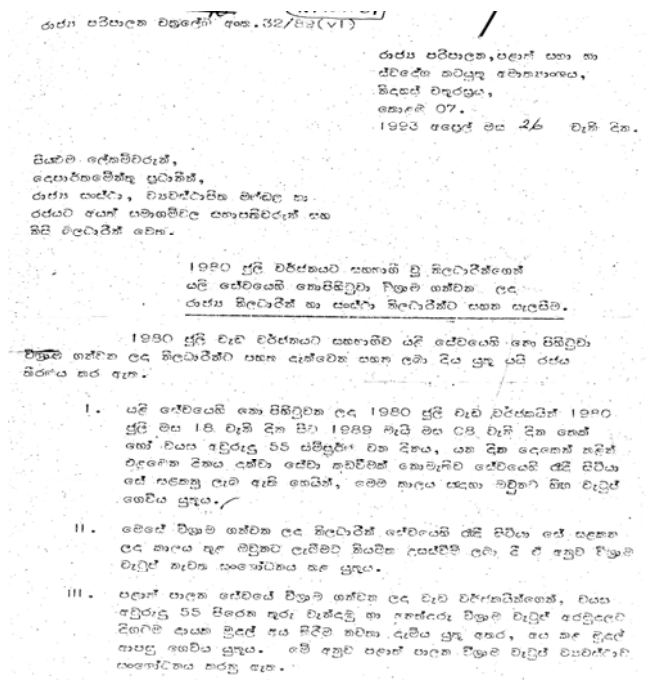 රාජ්‍ය පරිපාලන චක්‍රලේඛ අංක.32/89(VI)
රාජ්‍ය පරිපාලන,පළාත් සභා හා
ස්වදේශ කටයුතු අමාත්‍යාංශය,
නිදහස් චතුරශ්‍රය,
කොළඹ 07.
1993 අප්‍රෙල් මස 26 වැනි දින.
සියළුම ලේකම්වරුන්,
දෙපාර්තමේන්තු ප්‍රධානීන්,
රාජ්‍ය සංස්ථා, ව්‍යවස්ථාපිත මණ්ඩල හා
රජයට අයත් සමාගම්වල සභාපතිවරුන් සහ
නිසි බලධාරීන් වෙත.
1980 ජූලි වර්ජනයට සහභාගී වූ නිලධාරීන්ගෙන්
යළි සේවයෙහි නොපිහිටුවා විශ්‍රාම ගන්වන ලද
රාජ්‍ය නිලධාරීන් හා සංස්ථා නිලධාරීන්ට සහන සැලසීම.
1980 ජූලි වැඩ වර්ජනයට සහභාගීව යළි සේවයෙහි නො පිහිටුවා
විශ්‍රාම ගන්වන ලද නිලධාරීන්ට පහත දැක්වෙන සහන ලබා දිය යුතු යයි රජය
තීරණය කර ඇත.
I. යළි සේවයෙහි නො පිහිටුවන ලද 1980 ජූලි වැඩ වර්ජකයින් 1980
ජූලි මස 18 වැනි දින සිට 1989 මැයි මස 08 වැනි දින තෙක්
හෝ වයස අවුරුදු 55 සම්පූර්ණ වන දිනය, යන දින දෙකෙන් කලින්
එළඹෙන දිනය දක්වා සේවා කඩවීමක් නොමැතිව සේවයෙහි රැඳී සිටියා
සේ සළකනු ලැබ ඇති හෙයින්, මෙම කාලය සඳහා ඔවුනට හිඟ වැටුප්
ගෙවිය යුතුය.
II. මෙසේ විශ්‍රාම ගන්වන ලද නිලධාරීන් සේවයෙහි රැඳී සිටියා සේ සළකන
ලද කාලය තුළ ඔවුනට ලැබීමට නියමිත උසස්වීම් ලබා දී ඒ අනුව විශ්‍රාම
වැටුප් නැවත සංශෝධනය කළ යුතුය.
III. පළාත් පාලන සේවයේ විශ්‍රාම ගන්වන ලද වැඩ වර්ජකයින්ගෙන්, වයස
අවුරුදු 55 පිරෙන තුරු වැන්දඹු හා අනත්දරු විශ්‍රාම වැටුප් අරමුදලට
දිගටම දායක මුදල් අය කිරීම නවතා දැමිය යුතු අතර, අය කළ මුදල්
ආපසු ගෙවිය යුතුය. මේ අනුව පළාත් පාලන විශ්‍රාම වැටුප් ව්‍යවස්ථාව
සංශෝධනය කරනු ඇත.